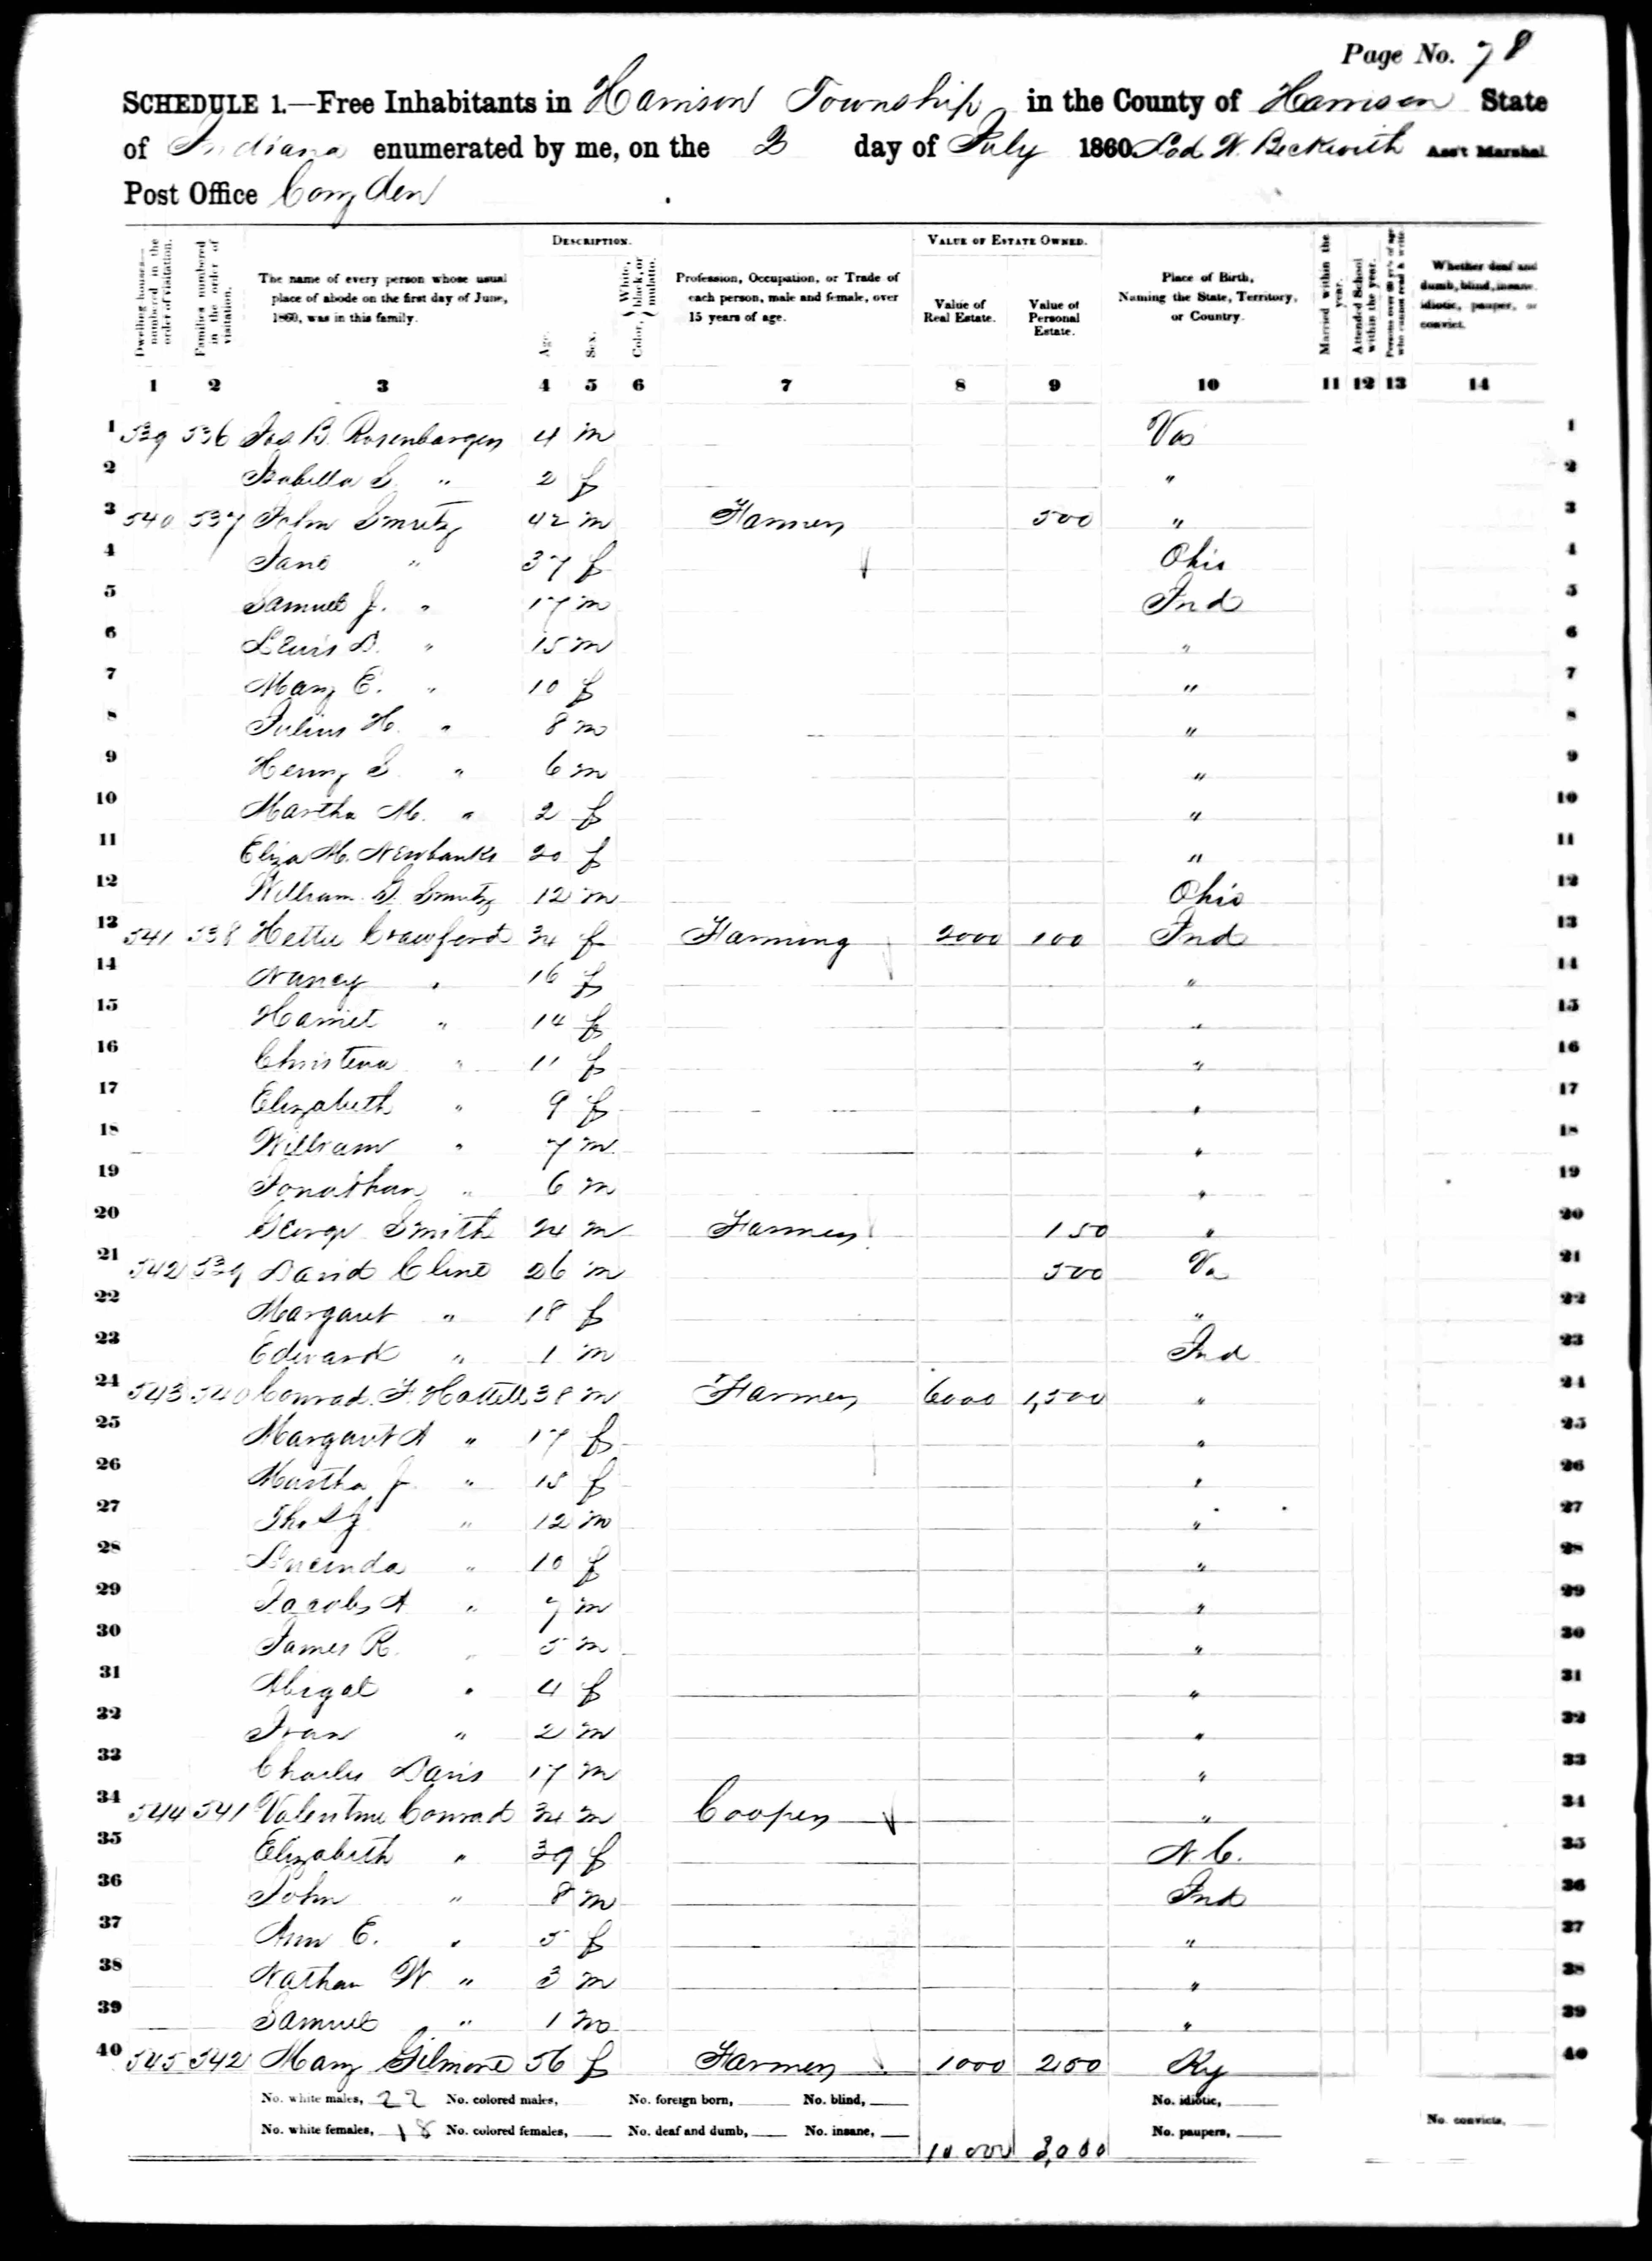 Page No. 78
SCHEDULE 1.—Free Inhabitants in Harrison Township in the County of Harrison State
of Indiana enumerated by me, on the 2 day of July 1860. W. Beckwith Ass't Marshal
Post Office Corydon
Dwelling houses—numbered in the order of visitation.
Families numbered in the order of visitation.
The name of every person whose usual place of abode on the first day of June, 1860, was in this family.
DESCRIPTION.
Age.
Sex.
Color, White, black, or mulatto.
Profession, Occupation, or Trade of each person, male and female, over 15 years of age.
VALUE OF ESTATE OWNED.
Value of Real Estate.
Value of Personal Estate.
Place of Birth, Naming the State, Territory, or Country.
Married within the year.
Attended School within the year.
Persons over 20 y'rs of age who cannot read & write
Whether deaf and dumb, blind, insane, idiotic, pauper, or convict.
1 2 3 4 5 6 7 8 9 10 11 12 13 14
1 539 536 Jas B. Rosenbarger 4 m Va 1
2 Isabella S. " 2 f " 2
3 540 537 John Smutz 42 m Farmer 500 " 3
4 Jane " 37 f Ohio 4
5 Samuel J. " 17 m Ind 5
6 Lewis D. " 15 m " 6
7 Mary E. " 10 f " 7
8 Julius H. " 8 m " 8
9 Henry S. " 6 m " 9
10 Martha M. " 2 f " 10
11 Eliza M. Newbanks 20 f " 11
12 William G. Smutz 12 m Ohio 12
13 541 538 Hettie Crawford 34 f Farming 2000 100 Ind 13
14 Nancy " 16 f " 14
15 Harriet " 14 f " 15
16 Christena " 11 f " 16
17 Elizabeth " 9 f " 17
18 William " 7 m " 18
19 Jonathan " 6 m " 19
20 George Smith 24 m Farmer 150 " 20
21 542 539 David Cline 26 m 500 Va 21
22 Margaret " 18 f " 22
23 Edward " 1 m Ind 23
24 543 540 Conrad F. Hottell 38 m Farmer 6000 1,500 " 24
25 Margaret A " 17 f " 25
26 Martha J " 15 f " 26
27 " 12 m " 27
28 Lucinda " 10 f " 28
29 Jacob A " 7 m " 29
30 James R. " 5 m " 30
31 Abigal " 4 f " 31
32 " 2 m " 32
33 Charles Davis 17 m " 33
34 544 541 Valentine Conrad 34 m Cooper " 34
35 Elizabeth " 39 f N.C. 35
36 John " 8 m Ind 36
37 Ann E. " 5 f " 37
38 Nathan W " 3 m " 38
39 Samuel " 1 m " 39
40 545 542 Mary Gilmore 56 f Farmer 1000 250 Ky 40
No. white males, 22 No. colored males, No. foreign born, No. blind, No. idiotic,
No. white females, 18 No. colored females, No. deaf and dumb, No. insane, No. paupers, No. convicts,
10.000 3,000